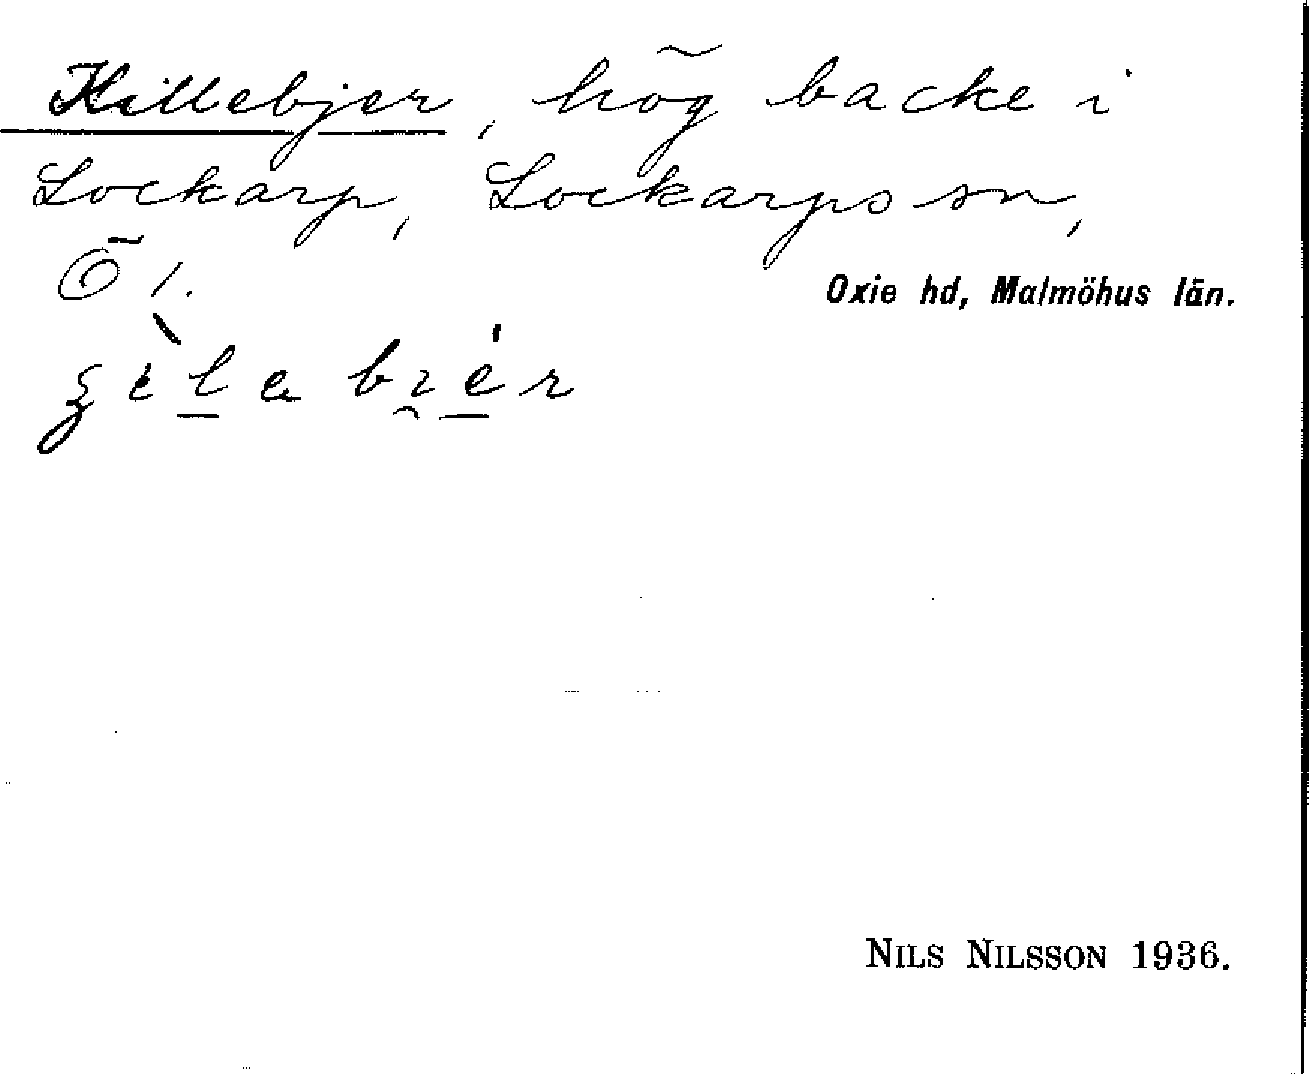 Killebjer, hög backe i
Lockarp, Lockarps sn,
Ö 1.
Oxie hd, Malmöhus län.
NILS NILSSON 1936.